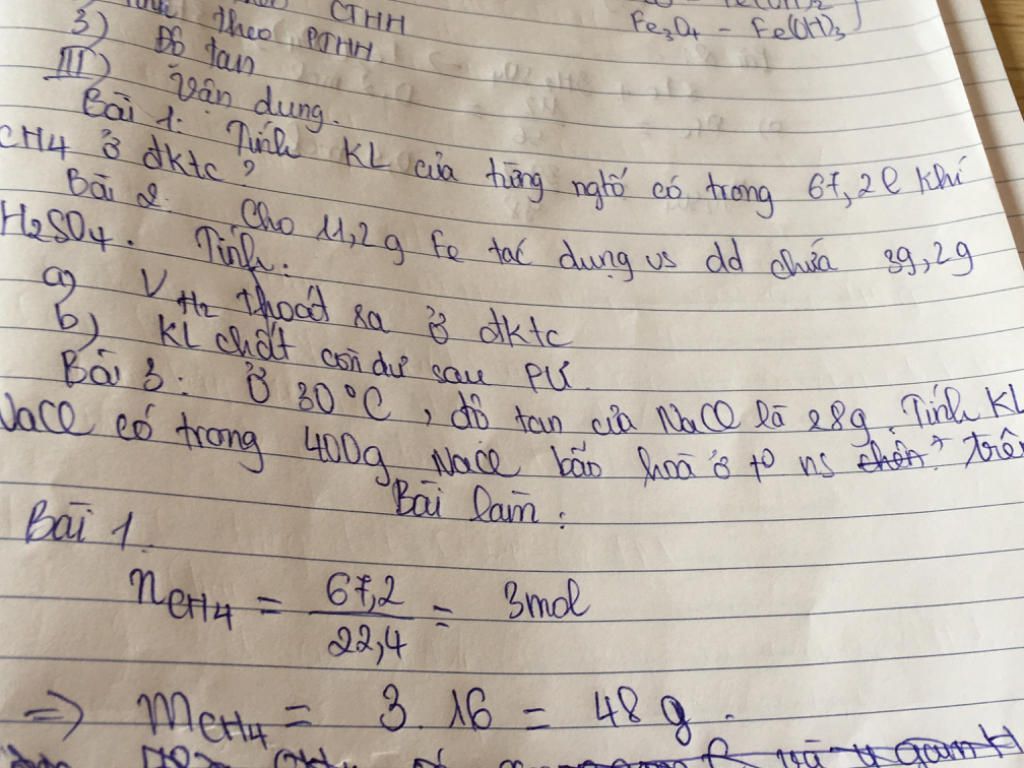 CTHH
Fe3O4 - Fe(OH)3
3) theo PTHH
Độ tan
III) Vận dụng.
Bài 1: Tính KL của từng ngtố có trong 67,2l khí
CH4 ở đktc?
Bài 2: Cho 11,2g Fe tác dụng vs dd chứa 39,2g
H2SO4. Tính:
a) V H2 thoát ra ở đktc
b) KL chất còn dư sau PƯ.
Bài 3: Ở 30°C, độ tan của NaCl là 28g. Tính KL
NaCl có trong 400g NaCl bão hoà ở to ns trên
Bài làm:
Bài 1.
nCH4 = 67,2 / 22,4 = 3mol
=> mCH4 = 3.16 = 48 g.